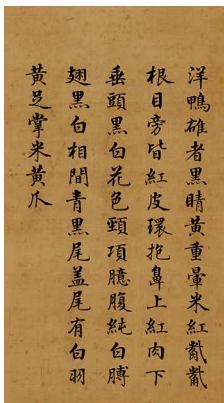 洋鴨雄者黑睛黃重暈米紅觜觜
根目旁皆紅皮環抱鼻上紅肉下
垂頭黑白花色頸項臆腹純白膊
翅黑白相間青黑尾盖尾有白羽
黃足掌米黃爪